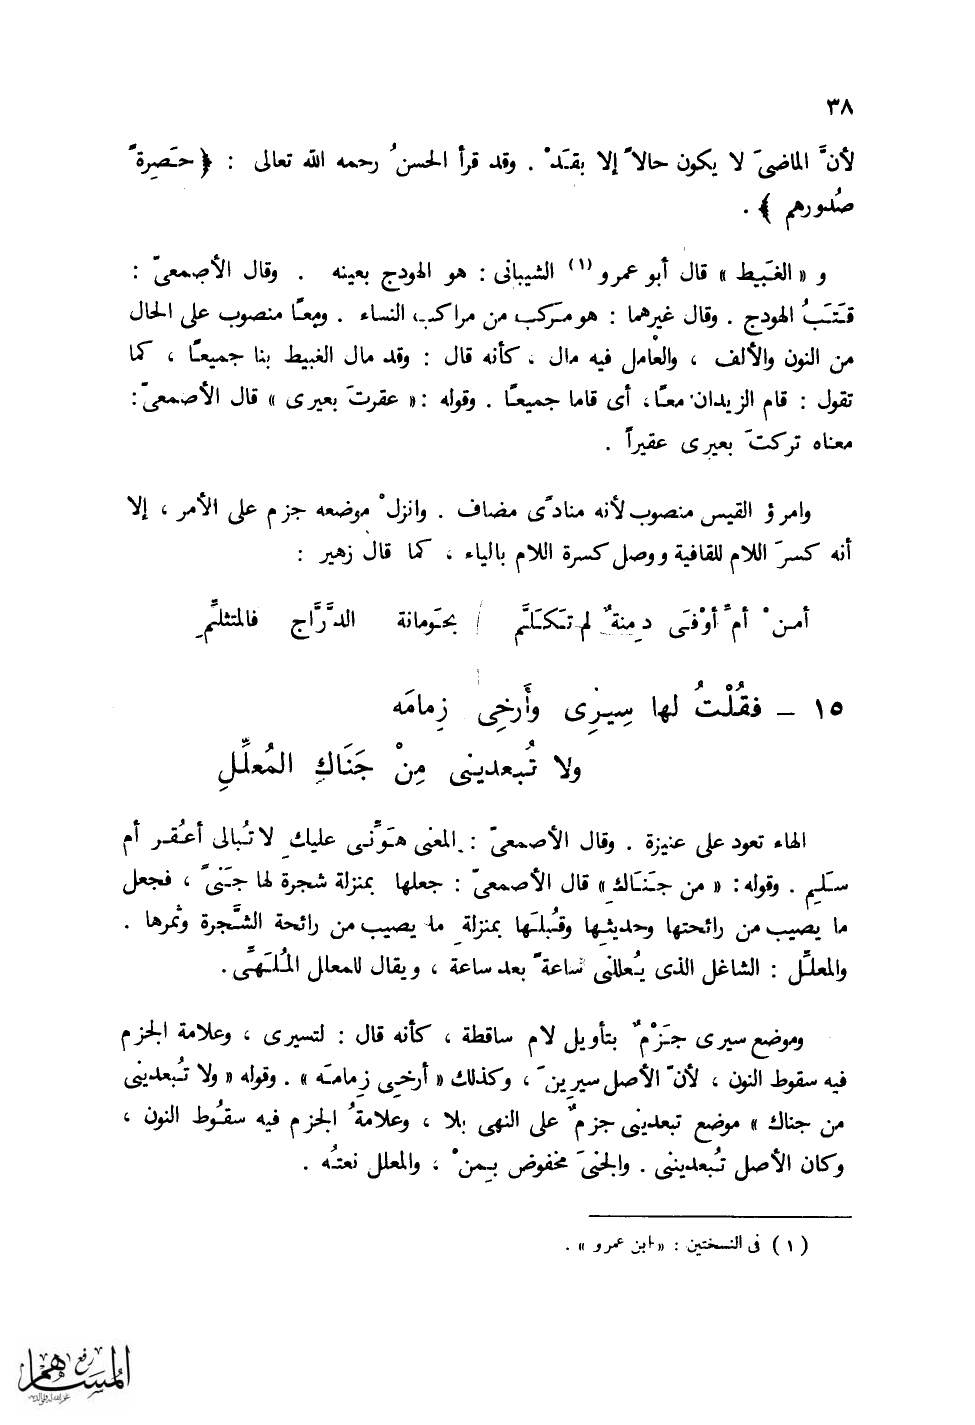 ٣٨
لأنَّ الماضىَ لا يكون حالاً إلا بقَدْ . وقد قرأ الحسنُ رحمه الله تعالى : ﴿ حَصِرةً
صُدورهم ﴾ .
و « الغَبيط » قال أبو عمرو (١) الشيبانى : هو الهودج بعينه . وقال الأصمعىّ :
قَتَبُ الهودج . وقال غيرهما : هو مَركب من مراكب النساء . ومعًا منصوب على الحال
من النون والألف ، والعامل فيه مال ، كأنه قال : وقد مال الغبيط بنا جميعًا ، كما
تقول : قام الزيدان معًا، أى قاما جميعًا . وقوله :« عقرتَ بعيرى » قال الأصمعىّ:
معناه تركتَ بعيرى عقيراً .
وامرؤ القيس منصوب لأنه منادًى مضاف . وانزلْ موضعه جزم على الأمر ، إلا
أنه كسرَ اللام للقافية ووصل كسرة اللام بالياء ، كما قال زهير :
أمنْ أمِّ أوْفَى دِمنةٌ لم تَكَلَّم بحَومانة الدَّرَّاج فالمتثلَّمِ
١٥ – فقُلْتُ لها سِيرِى وأَرخِى زِمامَه
ولا تُبعدينى مِنْ جَنَاكِ المُعلِّلِ
الهاء تعود على عنيزة . وقال الأصمعىّ : المعنى هَوِّنى عليكِ لا تُبالى أعُقر أم
سَلِيم . وقوله: « من جَنَاكِ » قال الأصمعىّ : جعلها بمنزلة شجرة لها جَنىً ، فجعل
ما يصيب من رائحتها وحديثِها وقُبلَها بمنزلةِ ما يصيب من رائحة الشَّجرة وثمرها .
والمعلِّل : الشاغل الذى يُعللنى ساعةً بعد ساعة ، ويقال للمعلل المُلهَّى.
وموضع سيرى جَزْمٌ بتأويل لام ساقطة ، كأنه قال : لتسيرى ، وعلامة الجزم
فيه سقوط النون ، لأنّ الأصل سيرينَ ، وكذلك « أرخِى زِمامَه » . وقوله « ولا تُبعدينى
من جناك » موضع تبعدينى جزمٌ على النهى بلا ، وعلامةُ الجزم فيه سقُوط النون ،
وكان الأصل تُبعديننى . والجنىَ مخفوض بِمنْ ، والمعلل نعتُه .
(١) فى النسختين : «ابن عمرو » .